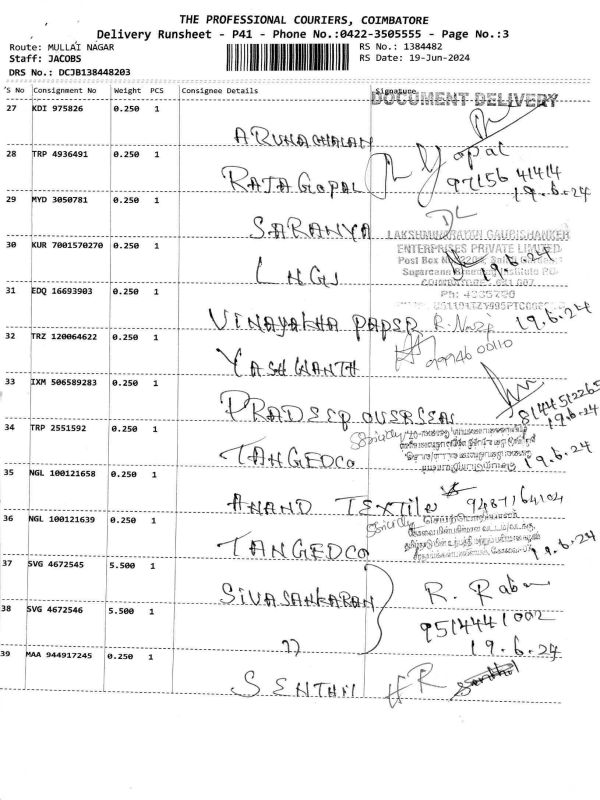 THE PROFESSIONAL COURIERS, COIMBATORE
Delivery Runsheet - P41 - Phone No.:0422-3505555 - Page No.:3
Route: MULLAI NAGAR RS No.: 1384482
Staff: JACOBS RS Date: 19-Jun-2024
DRS No.: DCJB138448203
S No Consignment No Weight PCS Consignee Details Signature
DOCUMENT DELIVERY
27 KDI 975826 0.250 1
ARUNACHALAM
28 TRP 4936491 0.250 1
RAJAGOPAL Gopal
97156 41414
19.6.24
29 MYD 3050781 0.250 1
SARANYA
30 KUR 7001570270 0.250 1
LNGS
LAKSHMINARAYAN GOURISHANKER
ENTERPRISES PRIVATE LIMITED
Post Box No.
Sugarcane Breeding Institute P.O.
COIMBATORE - 641 007
19.6.24
31 EDQ 16693903 0.250 1
VINAYAKHA PAPER 19.6.24
32 TRZ 120064622 0.250 1
YASHWANTH
33 IXM 506589283 0.250 1
PRADEEP OVERSEAS 8144512265
19.6.24
34 TRP 2551592 0.250 1
TANGEDCO 19.6.24
35 NGL 100121658 0.250 1
ANAND TEXTILE 9487164104
36 NGL 100121639 0.250 1
TANGEDCO 19.6.24
37 SVG 4672545 5.500 1
SIVASANKARAN R.
38 SVG 4672546 5.500 1
9514441002
19.6.24
39 MAA 944917245 0.250 1
SENTHIL